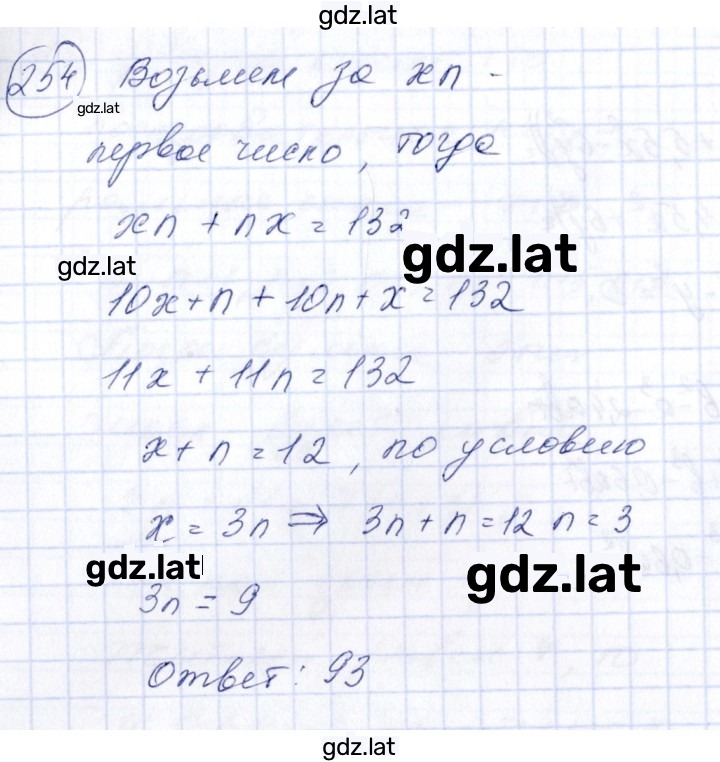 gdz.lat
254 Возьмем за xn -
gdz.lat
первое число, тогда
xn + nx = 132
gdz.lat
gdz.lat
10x + n + 10n + x = 132
11x + 11n = 132
x + n = 12, по условию
x = 3n ⇒ 3n + n = 12 n = 3
gdz.lat
gdz.lat
3n = 9
Ответ: 93
gdz.lat